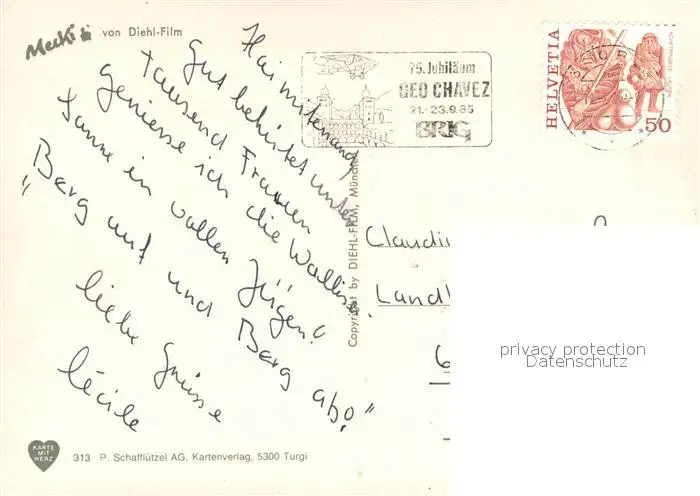 Mecki von Diehl-Film
Hoi mitenand
Gut behütet unter
tausend Frauen
geniesse ich die Walliser
sonne in vollen Zügen!
"Berg auf und Berg ab!"
liebe Grüsse
Cécile
KARTE
MIT
HERZ
313 P. Schafflützel AG, Kartenverlag, 5300 Turgi
Copyright by DIEHL-FILM, München
75. Jubiläum
GEO CHAVEZ
21.-23.9.85
BRIG
HELVETIA
50
Claudi
Landl
6
privacy protection
Datenschutz